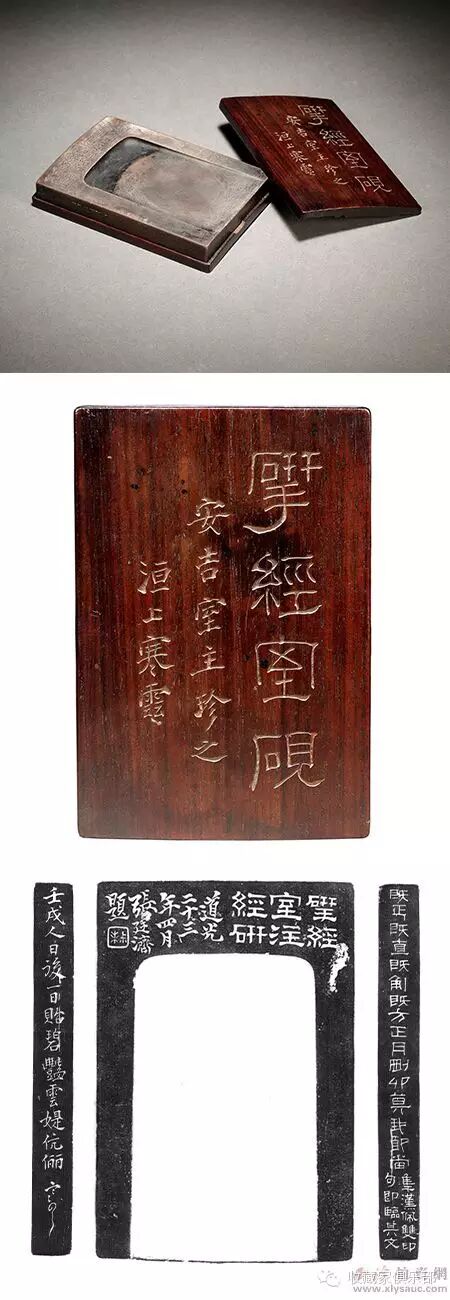 揅經室硯
安吉室主珍之
洹上寒雲
揅經室硯
安吉室主珍之
洹上寒雲
既正既直既觚既方正月剛卯莫我敢當
集漢佩雙印
句即臨其文
揅經
室注
經研
道光
二十三
年四月
張廷濟
題
壬戌人日後一日貽碧豔雲媞伉儷
收藏家俱乐部
www.xlysauc.com